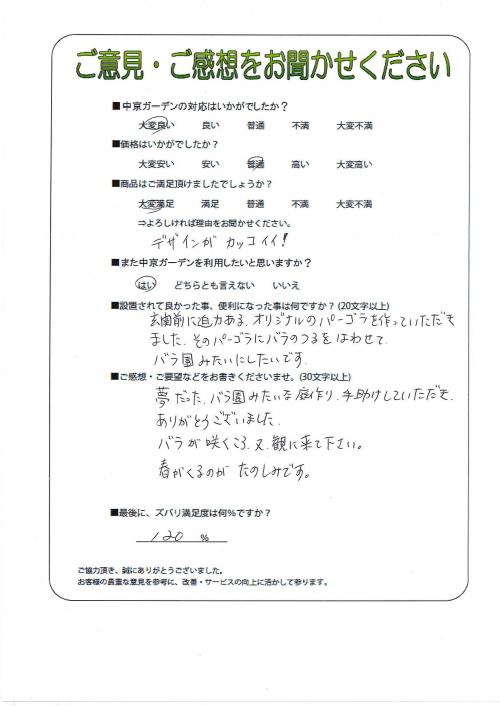 ご意見・ご感想をお聞かせください
■中京ガーデンの対応はいかがでしたか？
大変良い 良い 普通 不満 大変不満
■価格はいかがでしたか？
大変安い 安い 普通 高い 大変高い
■商品はご満足頂けましたでしょうか？
大変満足 満足 普通 不満 大変不満
⇒よろしければ理由をお聞かせください。
デザインが カッコイイ！
■また中京ガーデンを利用したいと思いますか？
はい どちらとも言えない いいえ
■設置されて良かった事、便利になった事は何ですか？(20文字以上)
玄関前に迫力ある、オリジナルのパーゴラを作っていただき
ました、そのパーゴラにバラのつるをはわせて、
バラ園みたいにしたいです。
■ご感想・ご要望などをお書きくださいませ。(30文字以上)
夢だった、バラ園みたいな庭作り、手助けしていただき、
ありがとうございました、
バラが咲くころ、又、観に来て下さい。
春がくるのが たのしみです。
■最後に、ズバリ満足度は何％ですか？
120 ％
ご協力頂き、誠にありがとうございました。
お客様の貴重な意見を参考に、改善・サービスの向上に活かして参ります。